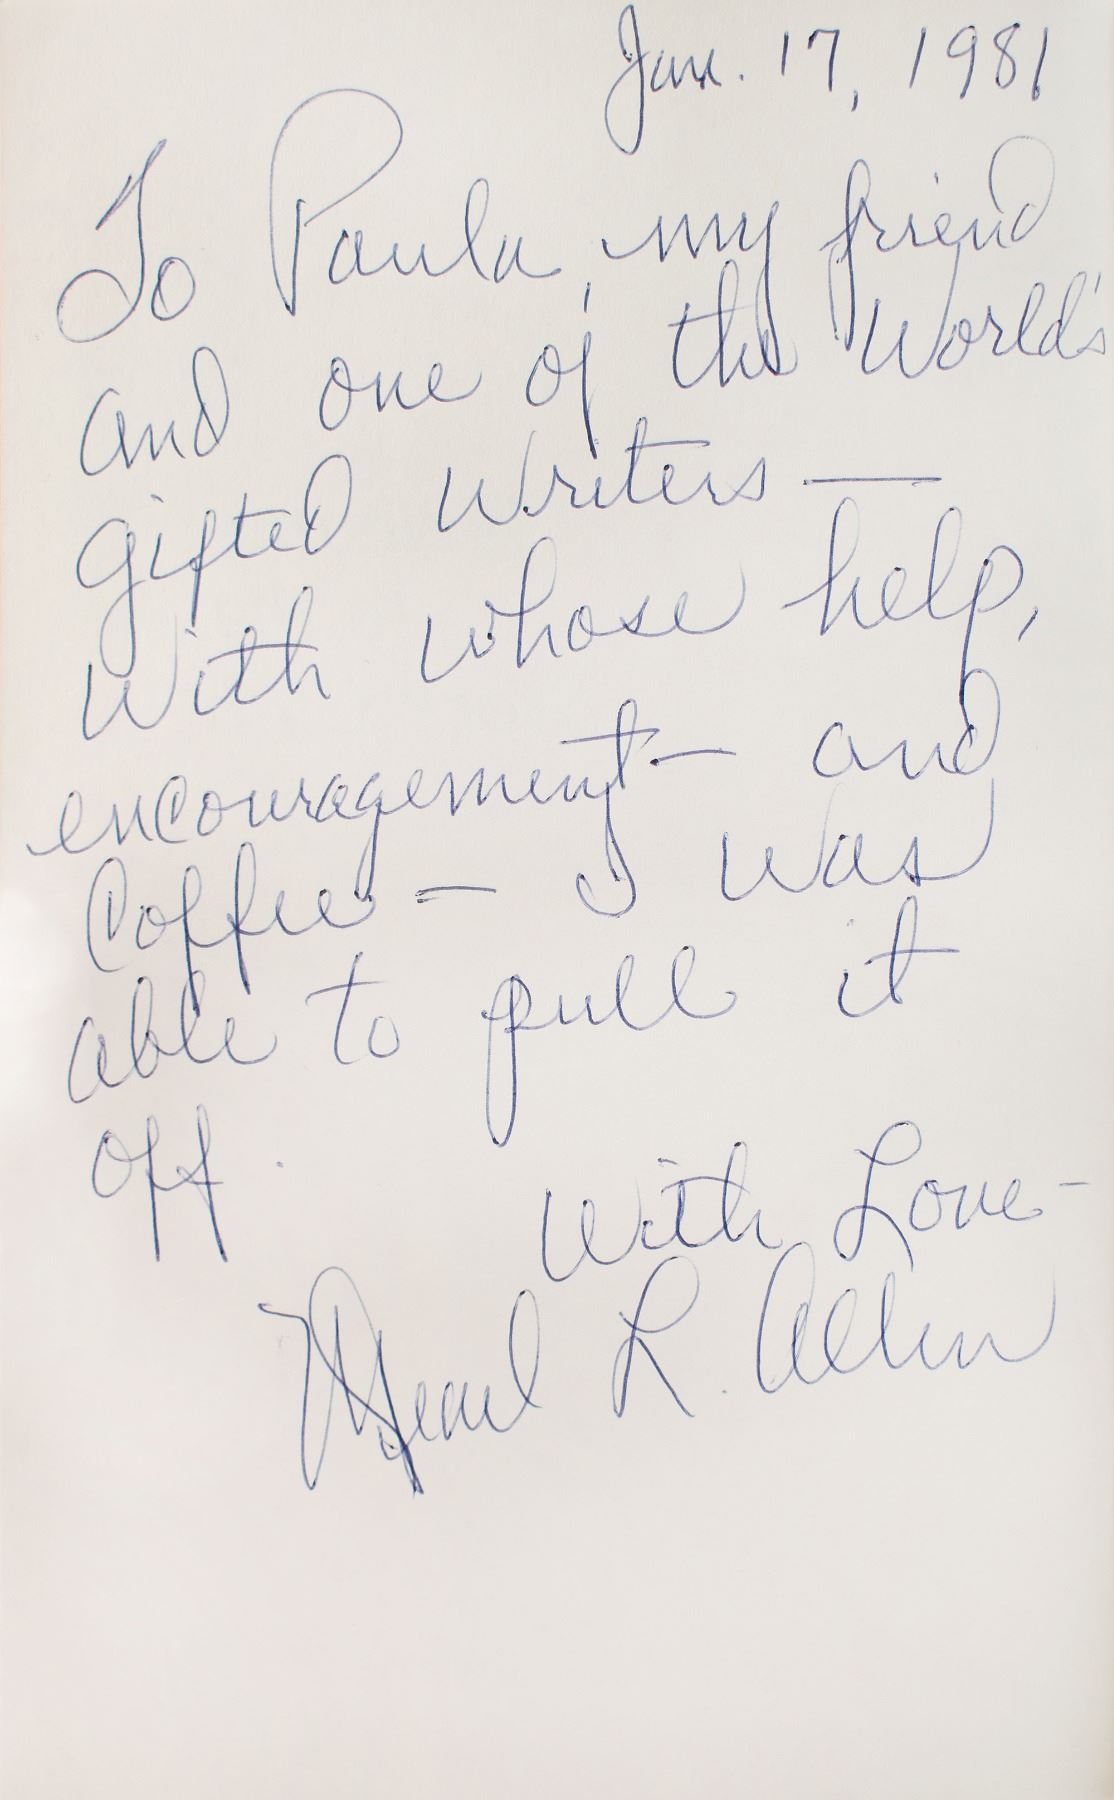 Jan. 17, 1981
To Paula, my friend
and one of the World's
gifted writers —
with whose help,
encouragement — and
Coffee — I was
able to pull it
off.
With Love -
L. Allen